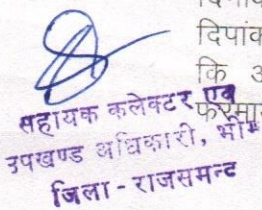 दिपांक
कि
सहायक कलेक्टर एवं
उपखण्ड अधिकारी, भीम
जिला - राजसमन्द